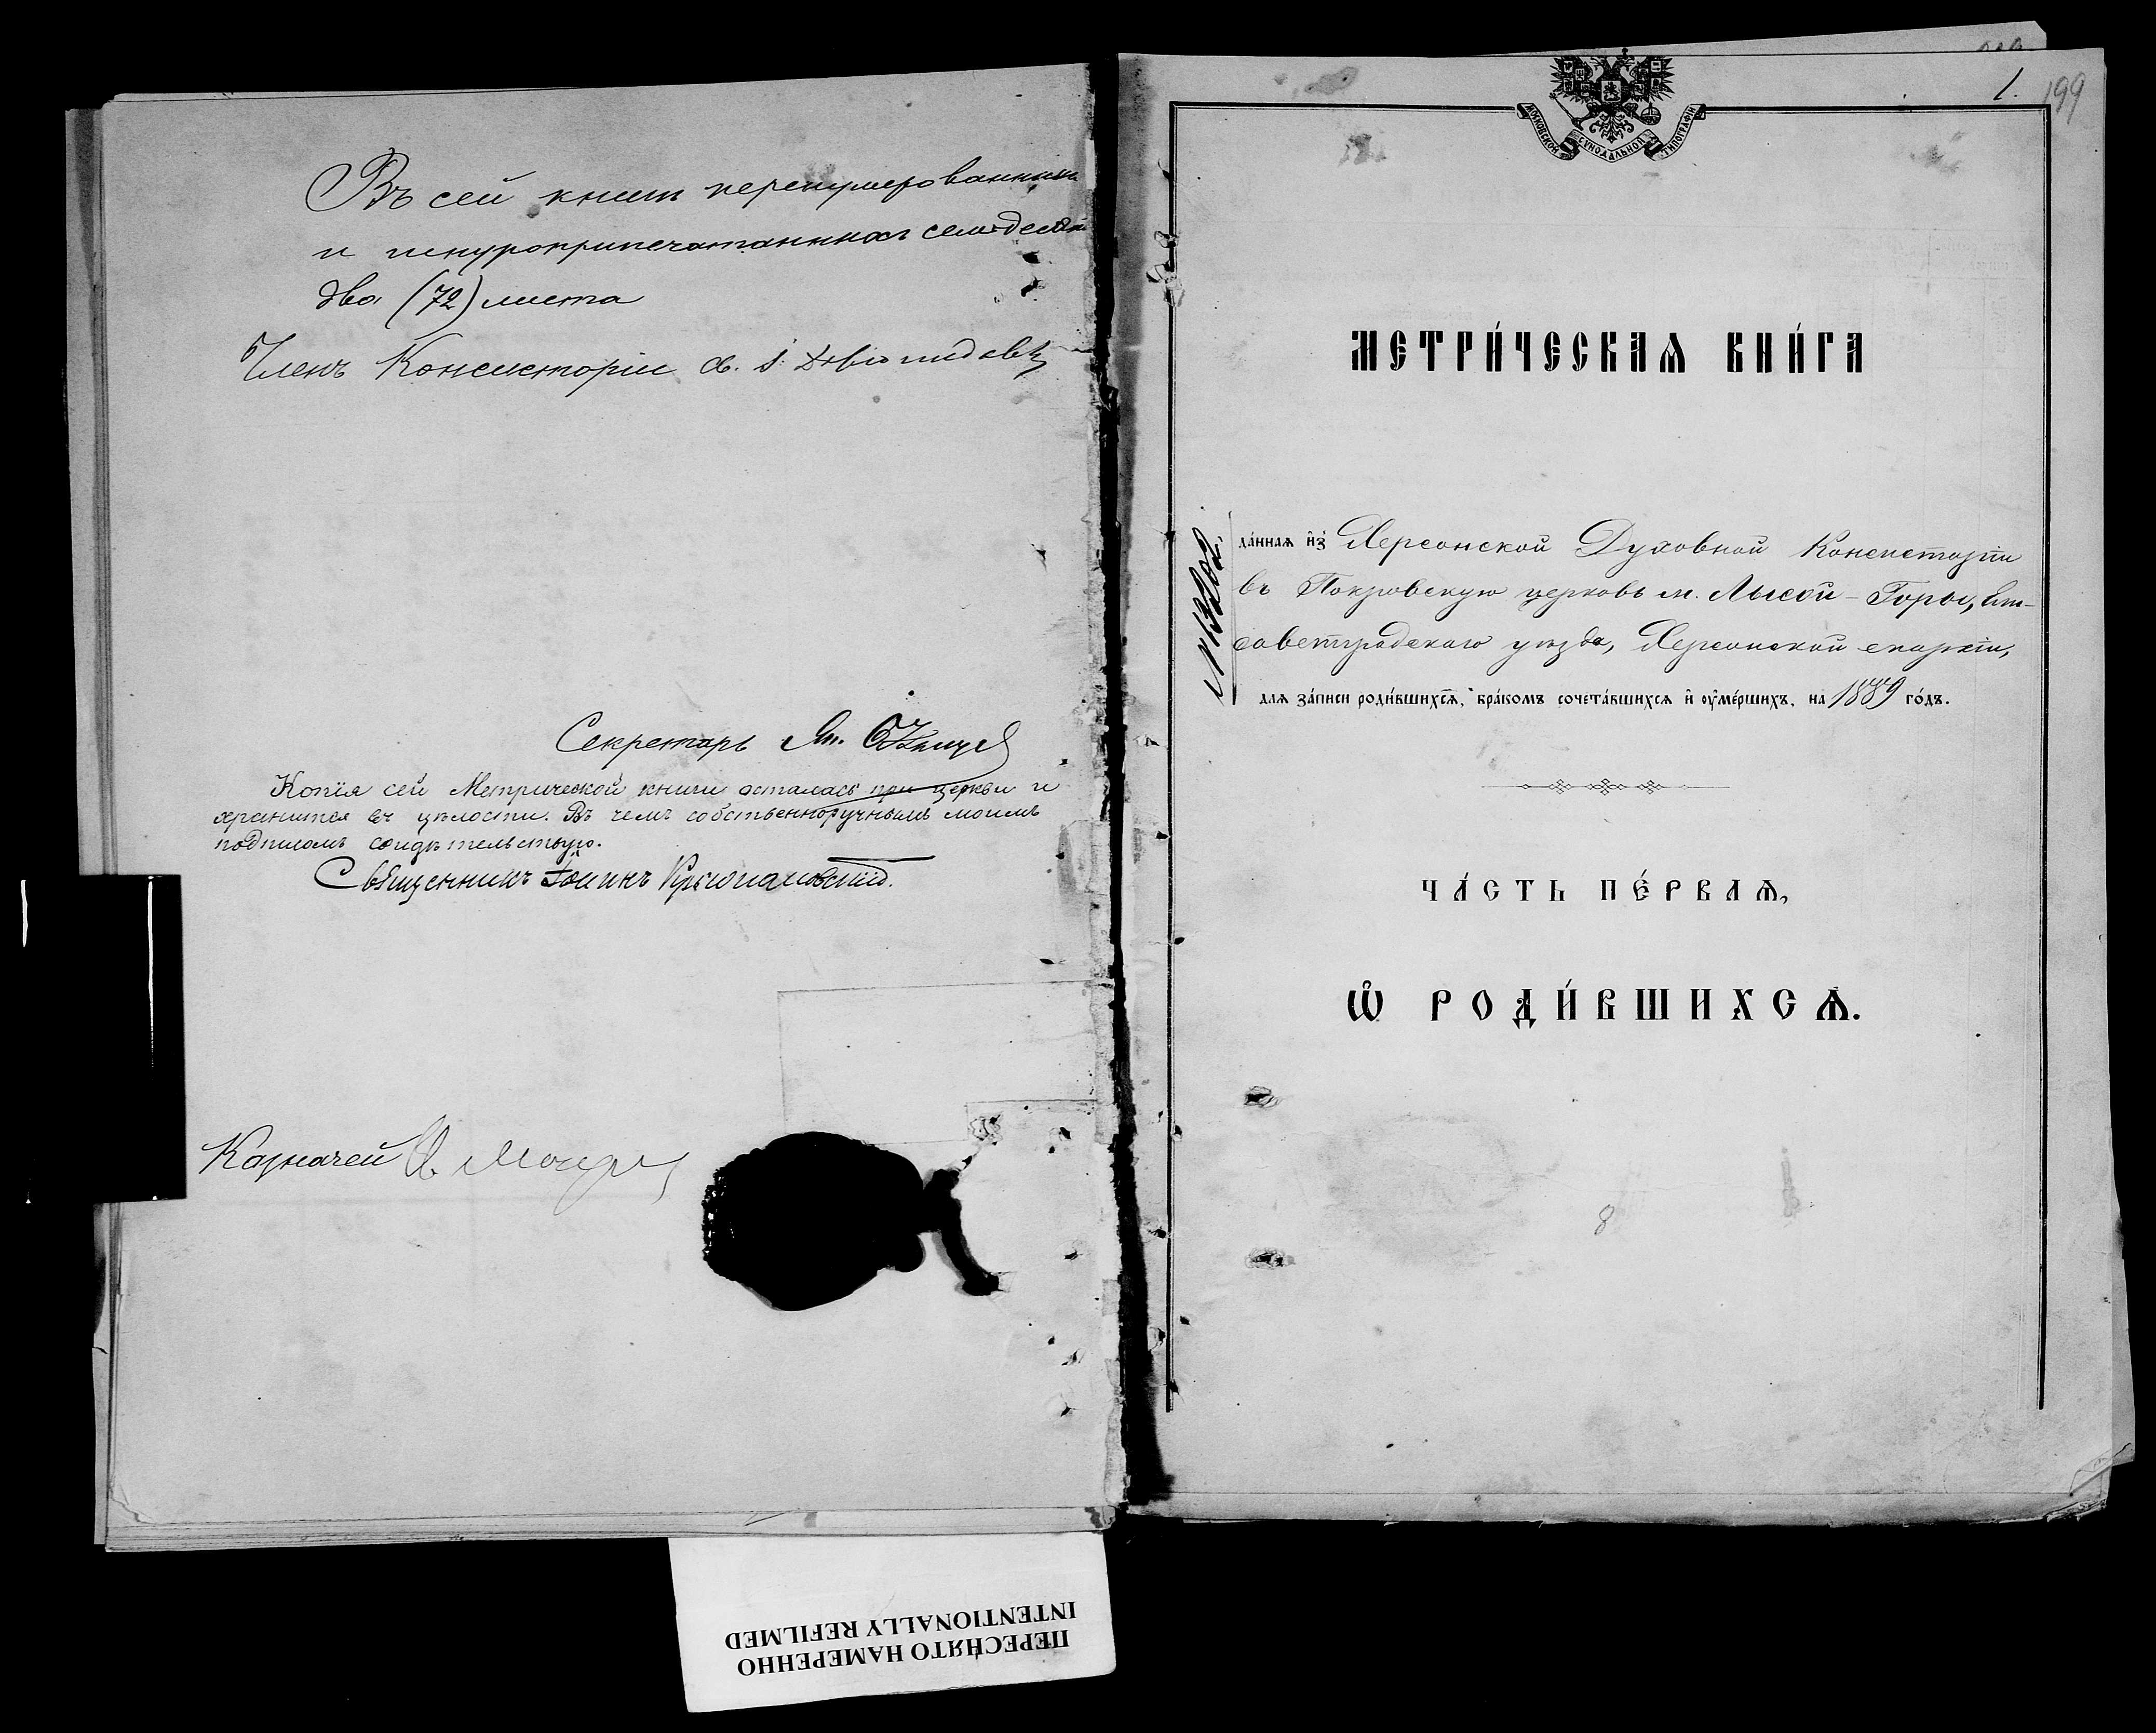 Въ сей книгѣ перенумерованныхъ
и шнуроприпечатанныхъ семьдесятъ
два (72) листа
Членъ Консисторіи св. І.
Секретарь
Копія сей Метрической книги осталась при церкви и
хранится въ цѣлости. Въ чемъ собственноручнымъ моимъ
подписомъ свидѣтельствую.
Священникъ Іоаннъ
Казначей
ПЕРЕСНЯТО НАМЕРЕННО
INTENTIONALLY REFILMED
1. 199
МОСКОВСКОЙ СѴНОДАЛЬНОЙ ТИПОГРАФІИ
МЕТРИ́ЧЕСКАѦ КНИ́ГА
№ 13202.
да́ннаѧ и҆з̾ Херсонской Духовной Консисторіи
въ Покровскую церковь м. Лысой-Горы, Ели-
саветградскаго уѣзда, Херсонской епархіи,
для за́писи роди́вшихсѧ, бра́комъ сочета́вшихсѧ и҆ ᲂу҆ме́ршихъ, на 1889 го́дъ.
ЧА́СТЬ ПЕ́РВАѦ,
Ѽ РОДИ́ВШИХСѦ.
8